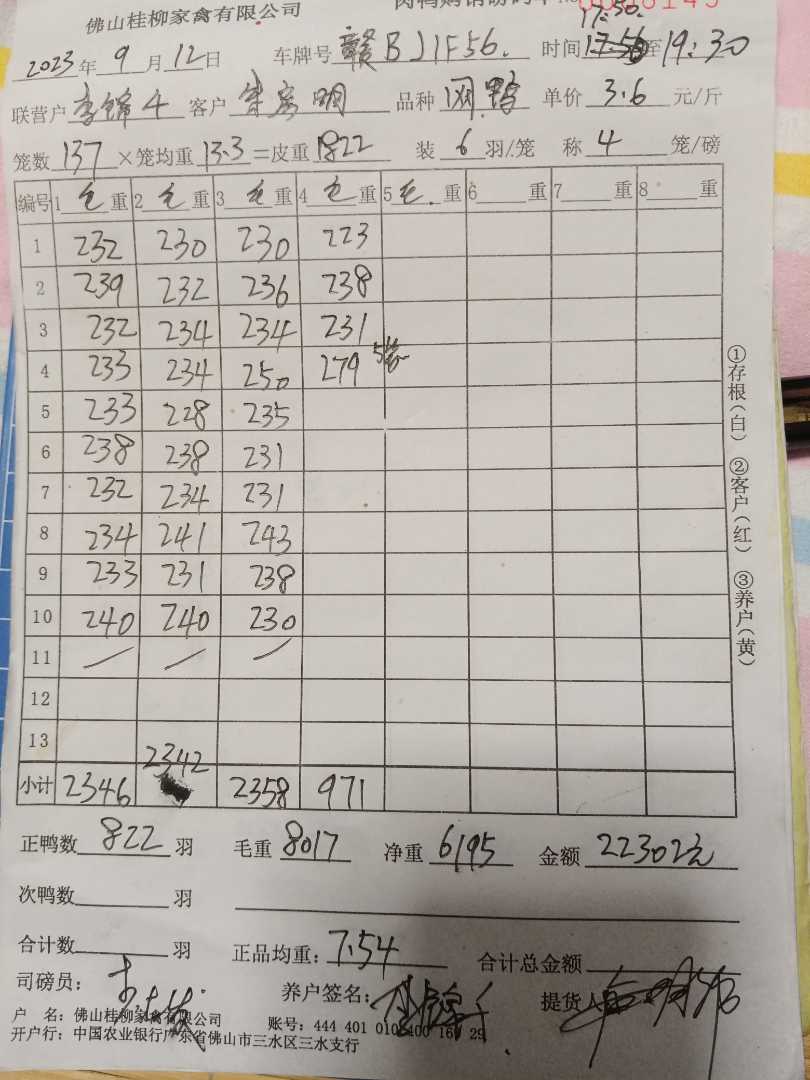 佛山桂柳家禽有限公司
17:30.
2023年9月12日 车牌号 赣BJ1F56. 时间 17:56至19:30
联营户 李锦 客户 明 品种 网鸭 单价 3.6 元/斤
笼数 137 ×笼均重 13.3 =皮重 1822 装 6 羽/笼 称 4 笼/磅
编号 1 毛 重 2 毛 重 3 毛 重 4 毛 重 5 毛. 重 6 重 7 重 8 重
1 232 230 230 223
2 239 232 236 238
3 232 234 234 231
4 233 234 250 279 5笼
5 233 228 235
6 238 238 231
7 232 234 231
8 234 241 243
9 233 231 238
10 240 240 230
11 / / /
12
13
小计 2346 2342 2358 971
①存根(白) ②客户(红) ③养户(黄)
正鸭数 822 羽 毛重 8017 净重 6195 金额 22302元
次鸭数 羽
合计数 羽 正品均重: 7.54 合计总金额
司磅员: 养户签名: 提货人
户 名: 佛山桂柳家禽有限公司 账号: 444 401 010 400 16 29
开户行: 中国农业银行广东省佛山市三水区三水支行